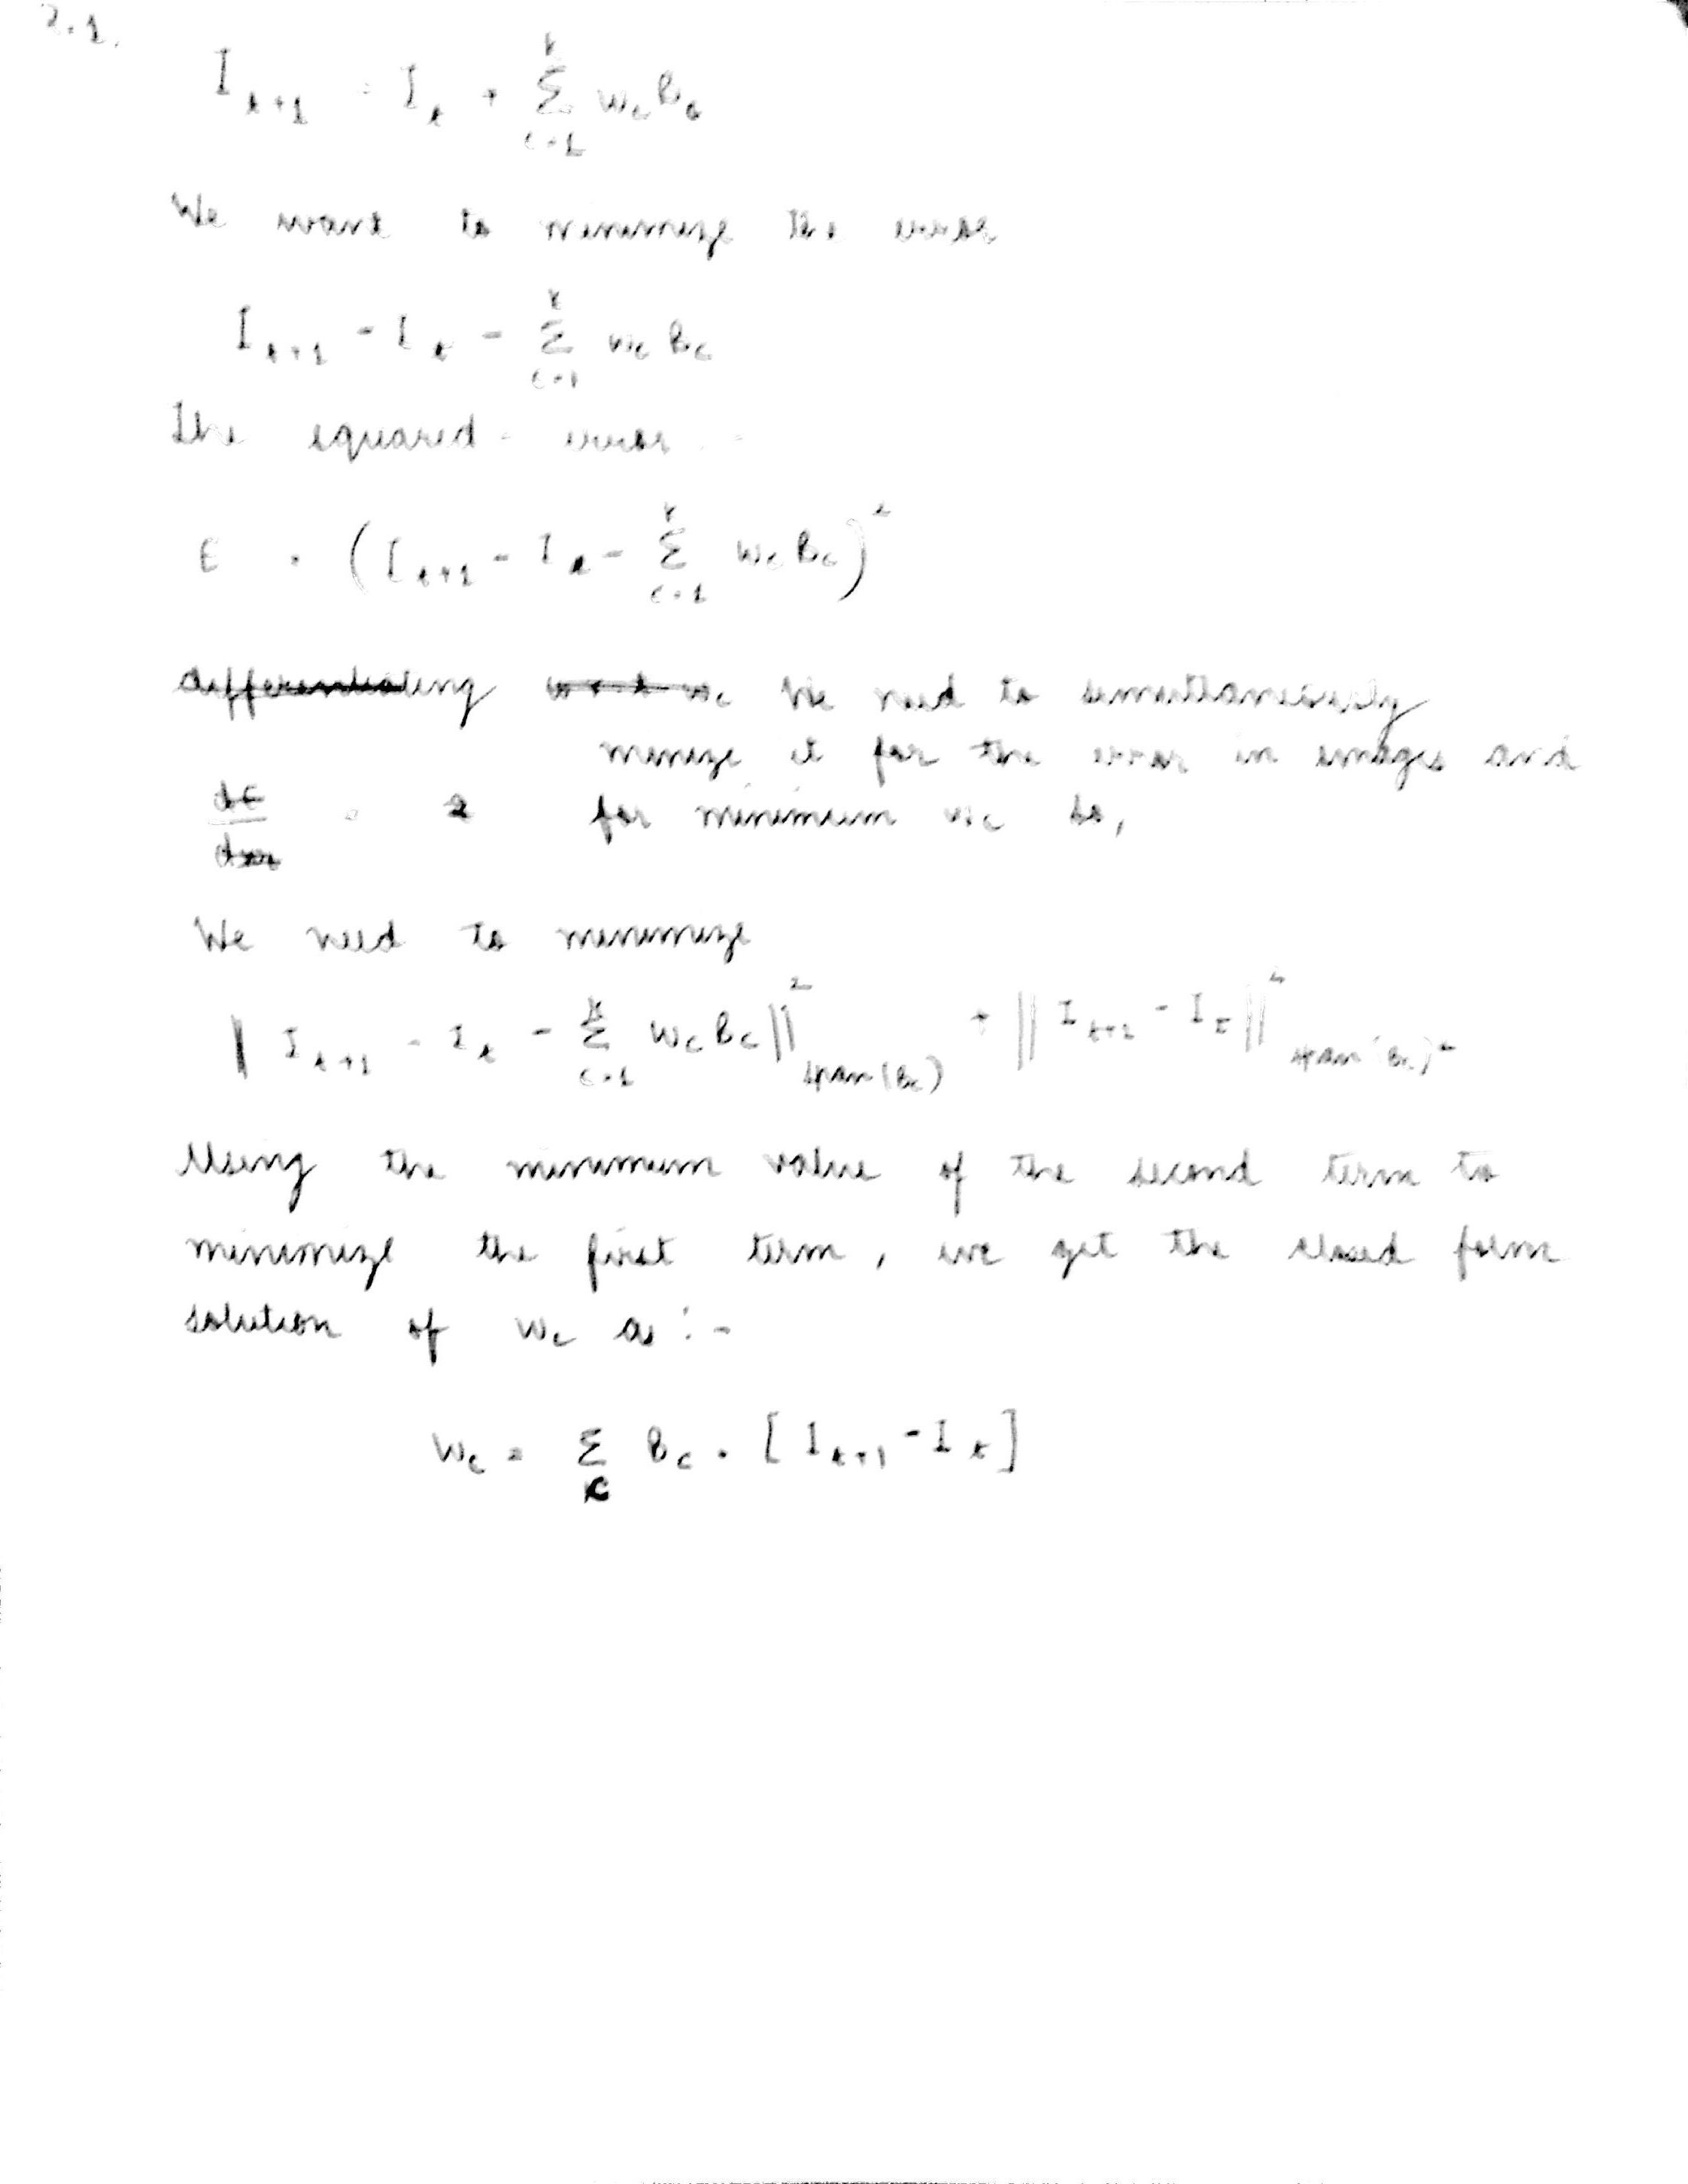 2.1.
I_{t+1} = I_t + \sum_{c=1}^{k} w_c B_c
We want to minimize the error
I_{t+1} - I_t - \sum_{c=1}^{k} w_c B_c
The squared - error :-
E = (I_{t+1} - I_t - \sum_{c=1}^{k} w_c B_c)^2
differentiating w.r.t w_c We need to simultaneously
minimize it for the error in images and
dE/dw_c = 2 for minimum w_c so,
We need to minimize
|| I_{t+1} - I_t - \sum_{c=1}^{k} w_c B_c ||^2_{span(B_c)} + || I_{t+1} - I_t ||^2_{span(B_c)^⊥}
Using the minimum value of the second term to
minimize the first term, we get the closed form
solution of w_c as :-
w_c = \sum_c B_c . [ I_{t+1} - I_t ]